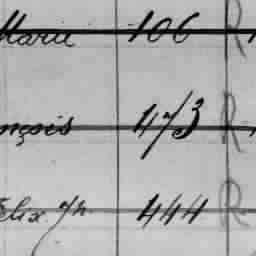 Marie 106 R
nçois 473 R
elix Jr. 444 R